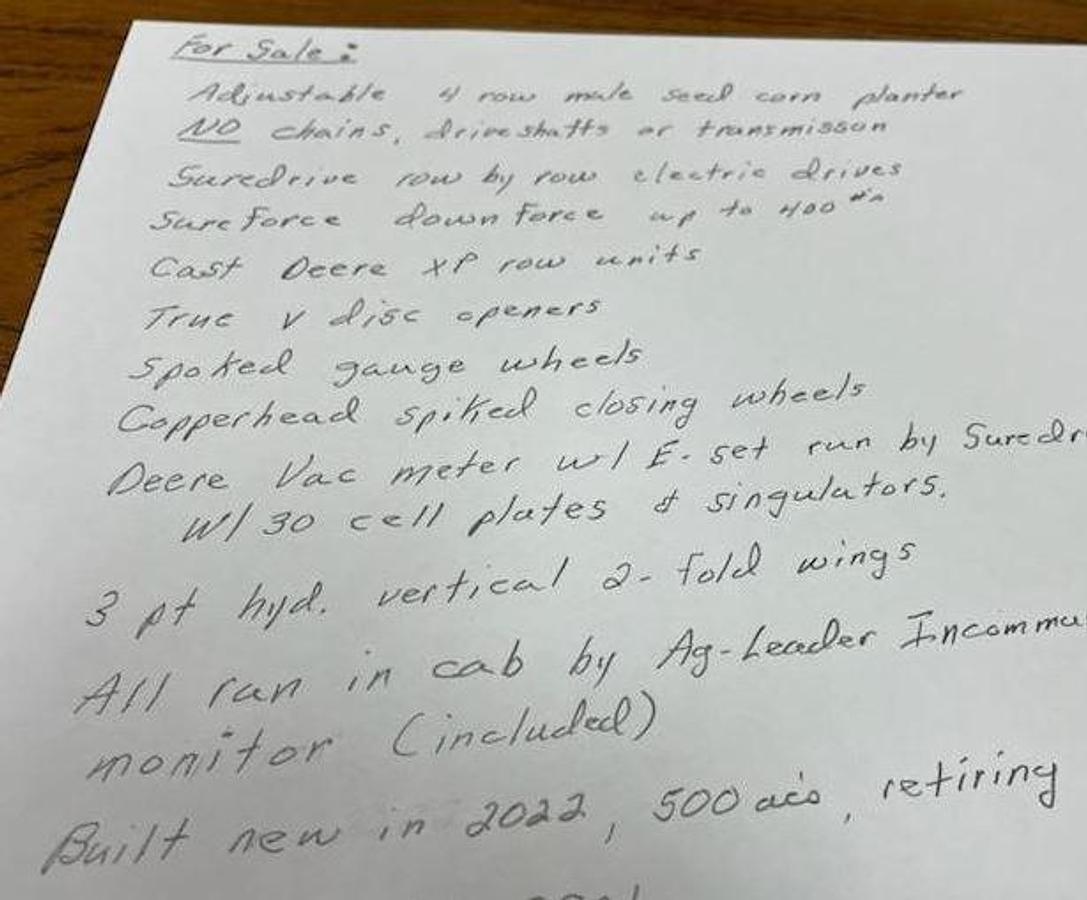 For Sale:
Adjustable 4 row male seed corn planter
NO chains, driveshafts or transmisson
Suredrive row by row electric drives
Sureforce down force up to 400 #'s
Cast Deere XP row units
True V disc openers
Spoked gauge wheels
Copperhead spiked closing wheels
Deere Vac meter w/ E-set run by Suredr
W/ 30 cell plates & singulators.
3 pt hyd. vertical 2-fold wings
All ran in cab by Ag-Leader Incomma
monitor (included)
Built new in 2022, 500 ac's, retiring